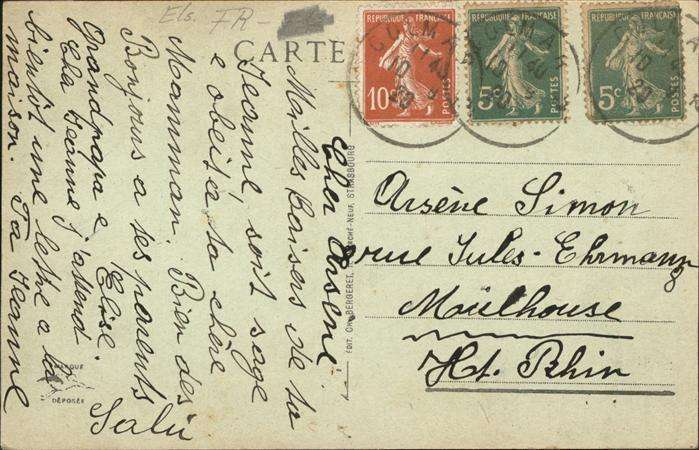 Els. FR-
CARTE
RÉPUBLIQUE FRANÇAISE
10c
POSTES
RÉPUBLIQUE FRANÇAISE
5c
POSTES
RÉPUBLIQUE FRANÇAISE
5c
POSTES
COLMAR
Cher Arsène.
Milles Baisers de ta
Jeanne, soit sage
e obeis à ta chère
Mamman. Bien des
Bonjours a ses parents
Grandpapa e Elise
Cha Jeanne j'attend
bientôt une lettre a la
maison. Ta Jeanne
Salü
Arsène Simon
rue Jules-Ehrmann
Mülhouse
Ht. Rhin
ÉDIT. CH. BERGERET, STRASBOURG
MARQUE
DÉPOSÉE